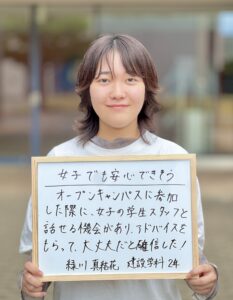 女子でも安心できそう
オープンキャンパスに参加
した際に、女子の学生スタッフと
話せる機会があり、アドバイスを
もらって、大丈夫だと確信した!
緑川 真結花 建設学科 24